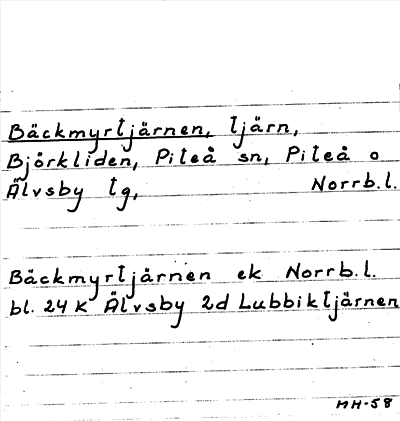 Bäckmyrtjärnen, tjärn,
Björkliden, Piteå sn, Piteå o
Älvsby tg, Norrb.l.
Bäckmyrtjärnen ek Norrb.l.
bl. 24 K Älvsby 2d Lubbiktjärnen
MH-58